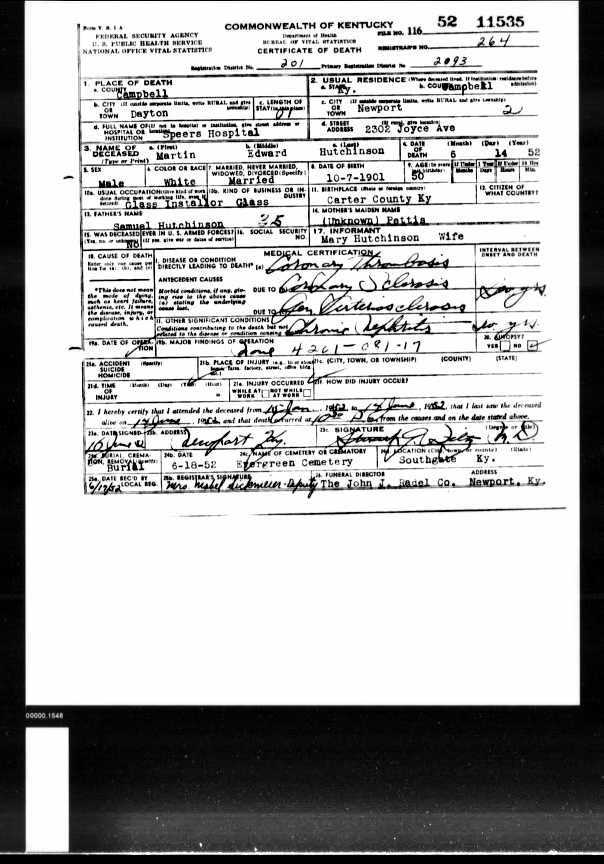 Form V. S. 1 A
COMMONWEALTH OF KENTUCKY 52 11535
FEDERAL SECURITY AGENCY Department of Health FILE NO. 116
U. S. PUBLIC HEALTH SERVICE BUREAU OF VITAL STATISTICS
NATIONAL OFFICE VITAL STATISTICS CERTIFICATE OF DEATH REGISTRAR'S NO. 264
Registration District No. 201 Primary Registration District No 2093
1. PLACE OF DEATH 2. USUAL RESIDENCE (Where deceased lived. If institution: residence before admission)
a. COUNTY Campbell a. STATE Ky. b. COUNTY Campbell
b. CITY (If outside corporate limits, write RURAL and give township) c. LENGTH OF c. CITY (If outside corporate limits, write RURAL and give township)
OR TOWN Dayton STAY (in this place) OR TOWN Newport 2
d. FULL NAME OF (If not in hospital or institution, give street address or location) d. STREET (If rural, give location)
HOSPITAL OR INSTITUTION Speers Hospital ADDRESS 2302 Joyce Ave
3. NAME OF DECEASED a. (First) b. (Middle) c. (Last) 4. DATE OF DEATH (Month) (Day) (Year)
(Type or Print) Martin Edward Hutchinson 6 14 52
5. SEX 6. COLOR OR RACE 7. MARRIED, NEVER MARRIED, WIDOWED, DIVORCED (Specify) 8. DATE OF BIRTH 9. AGE (In years last birthday) If Under 1 Year If Under 24 Hrs
Months Days Hours Min.
Male White Married 10-7-1901 50
10a. USUAL OCCUPATION (Give kind of work done during most of working life, even if retired) 10b. KIND OF BUSINESS OR INDUSTRY 11. BIRTHPLACE (State or foreign country) 12. CITIZEN OF WHAT COUNTRY?
Glass Installor Glass Carter County Ky
13. FATHER'S NAME 14. MOTHER'S MAIDEN NAME
Samuel Hutchinson 35 (Unknown) Pettis
15. WAS DECEASED EVER IN U. S. ARMED FORCES? 16. SOCIAL SECURITY NO. 17. INFORMANT
(Yes, no, or unknown) (If yes, give war or dates of service)
No Mary Hutchinson Wife
18. CAUSE OF DEATH MEDICAL CERTIFICATION INTERVAL BETWEEN ONSET AND DEATH
Enter only one cause per line for (a), (b), and (c) I. DISEASE OR CONDITION DIRECTLY LEADING TO DEATH* (a) Coronary Thrombosis
ANTECEDENT CAUSES
*This does not mean the mode of dying, such as heart failure, asthenia, etc. It means the disease, injury, or complication which caused death.
Morbid conditions, if any, giving rise to the above cause (a) stating the underlying cause last. DUE TO Coronary Sclerosis
DUE TO Gen Arteriosclerosis
II. OTHER SIGNIFICANT CONDITIONS
Conditions contributing to the death but not related to the disease or condition causing Chronic Nephritis
19a. DATE OF OPERATION 19b. MAJOR FINDINGS OF OPERATION 20. AUTOPSY?
4201-081-17 YES NO
21a. ACCIDENT SUICIDE HOMICIDE (Specify) 21b. PLACE OF INJURY (e.g., in or about home, farm, factory, street, office bldg., etc.) 21c. (CITY, TOWN, OR TOWNSHIP) (COUNTY) (STATE)
21d. TIME OF INJURY (Month) (Day) (Year) (Hour) 21e. INJURY OCCURRED 21f. HOW DID INJURY OCCUR?
WHILE AT WORK NOT WHILE AT WORK
22. I hereby certify that I attended the deceased from Jan , 1952 to 14 June , 1952, that I last saw the deceased
alive on 14 June , 1952, and that death occurred at from the causes and on the date stated above.
23a. DATE SIGNED 23b. ADDRESS 23c. SIGNATURE (Degree or title)
Newport Ky.
24a. BURIAL, CREMATION, REMOVAL (Specify) 24b. DATE 24c. NAME OF CEMETERY OR CREMATORY 24d. LOCATION (City, town, or county) (State)
Burial 6-18-52 Evergreen Cemetery Southgate Ky.
25a. DATE REC'D BY LOCAL REG. 25b. REGISTRAR'S SIGNATURE 26. FUNERAL DIRECTOR ADDRESS
6/17/52 Mrs. Mabel Dickmeier-Deputy The John J. Radel Co. Newport, Ky.
00000.1548